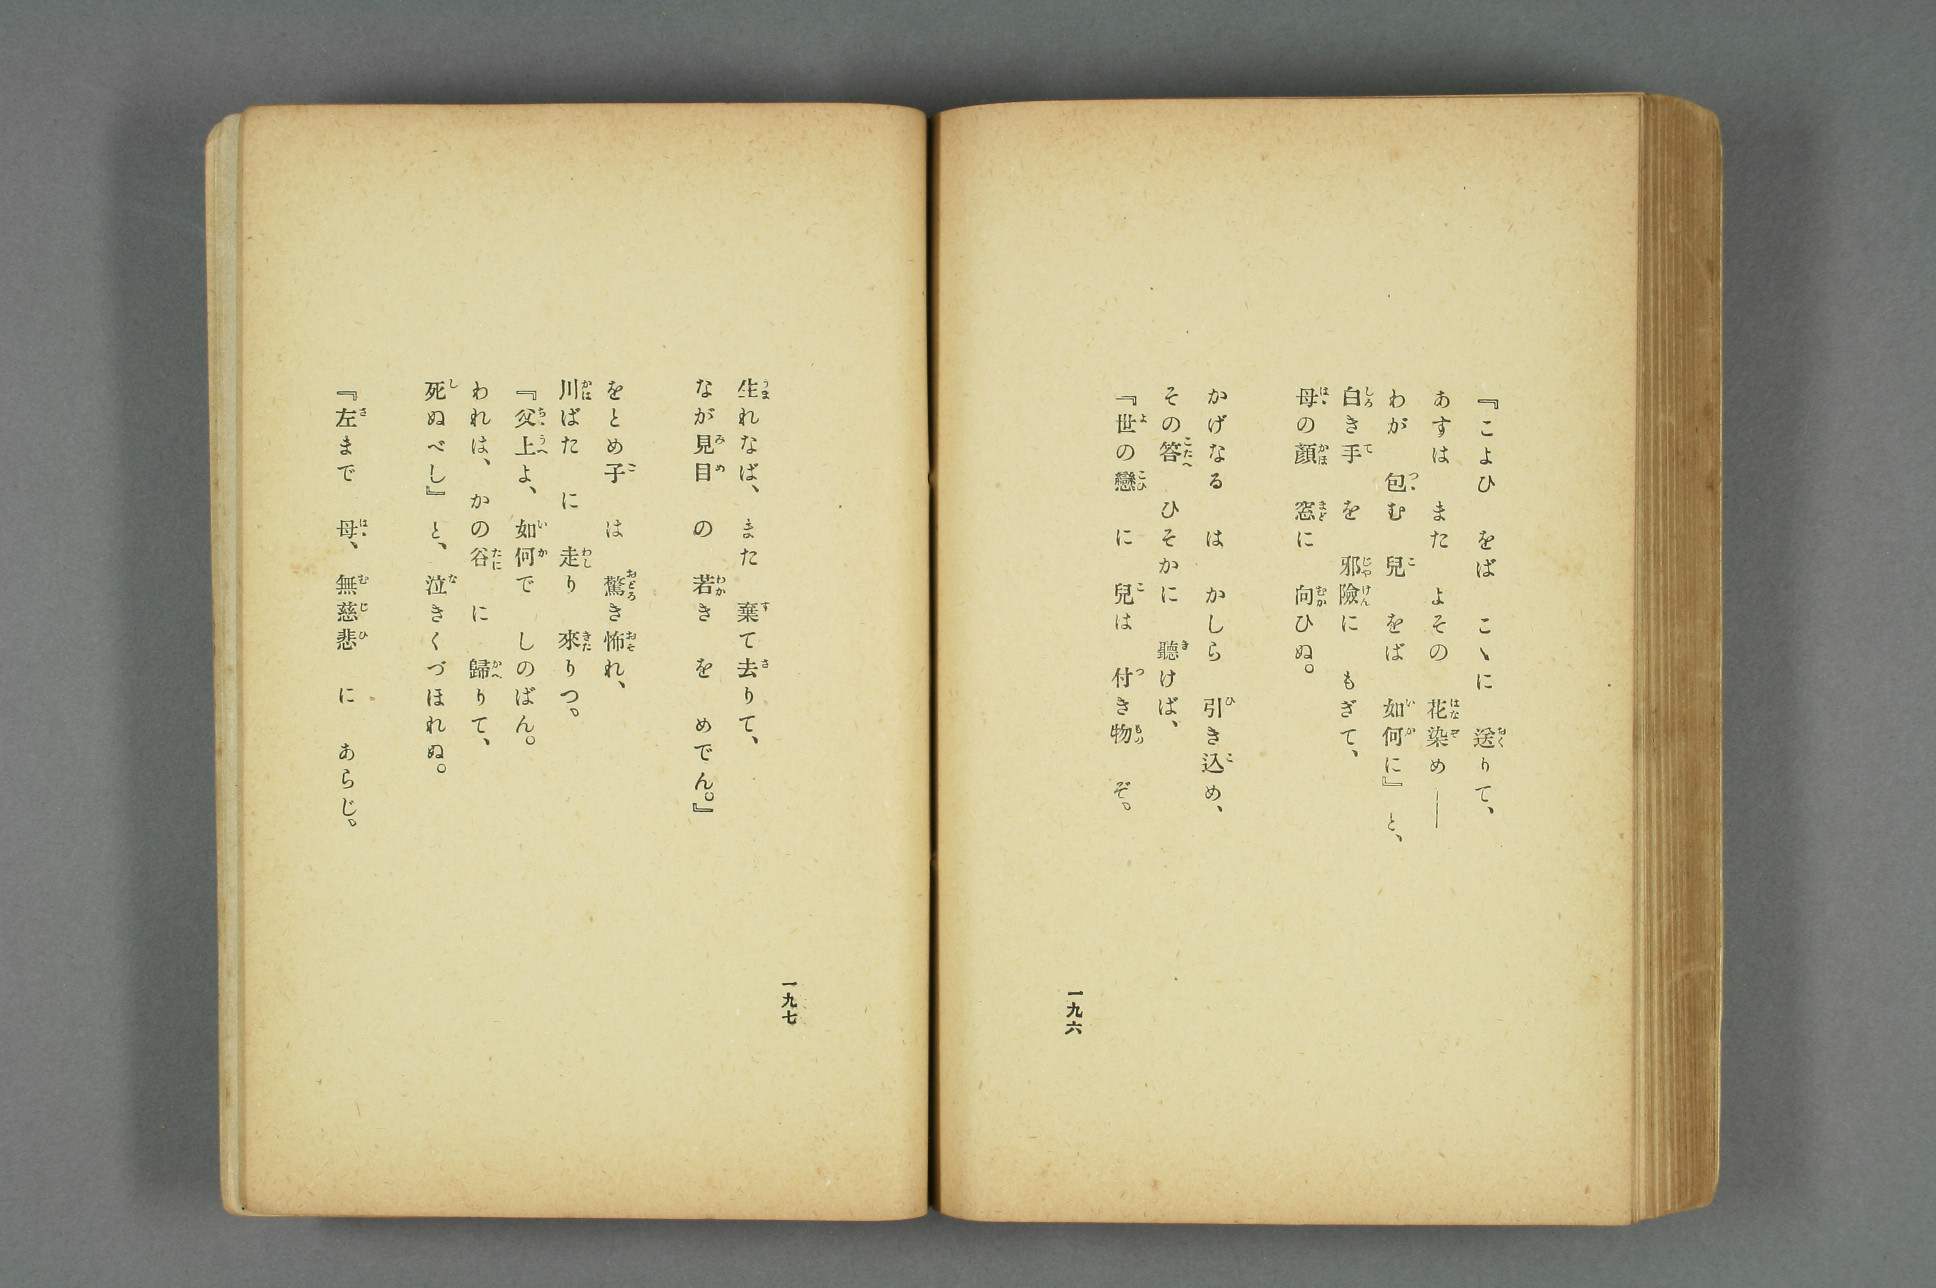 『こよひ をば こゝに 送りて、
あすは また よその 花染め――
わが 包む 兒 をば 如何に』と、
白き手 を 邪險に もぎて、
母の顏 窓に 向ひぬ。
かげなる は かしら 引き込め、
その答 ひそかに 聽けば、
『世の戀 に 兒は 付き物 ぞ。
一九六
生れなば、また 棄て去りて、
なが見目 の 若き を めでん。』
をとめ子 は 驚き怖れ、
川ばた に 走り 來りつ。
『父上よ、如何で しのばん。
われは、かの谷 に 歸りて、
死ぬべし』と、泣きくづほれぬ。
『左まで 母、無慈悲 に あらじ。
一九七